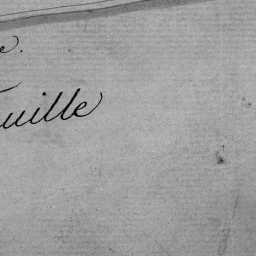 e.
uille